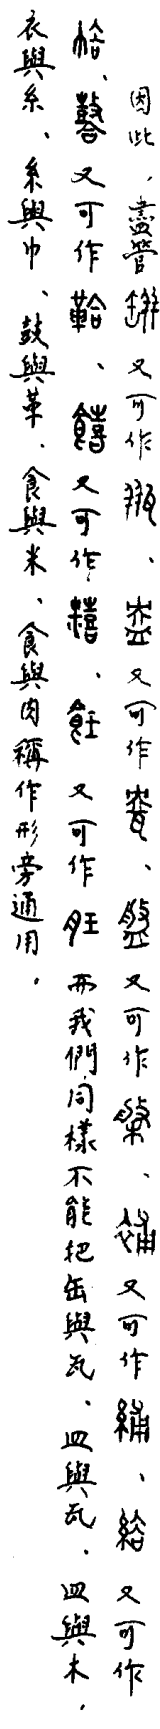 因此，盡管缾又可作瓶、盎又可作㼜、盤又可作槃、又可作、綌又可作
、又可作鞈、饎又可作糦、飪又可作而我們同樣不能把缶與瓦、皿與瓦、皿與木、
衣與糸、糸與巾、鼓與革、食與米、食與肉稱作形旁通用。